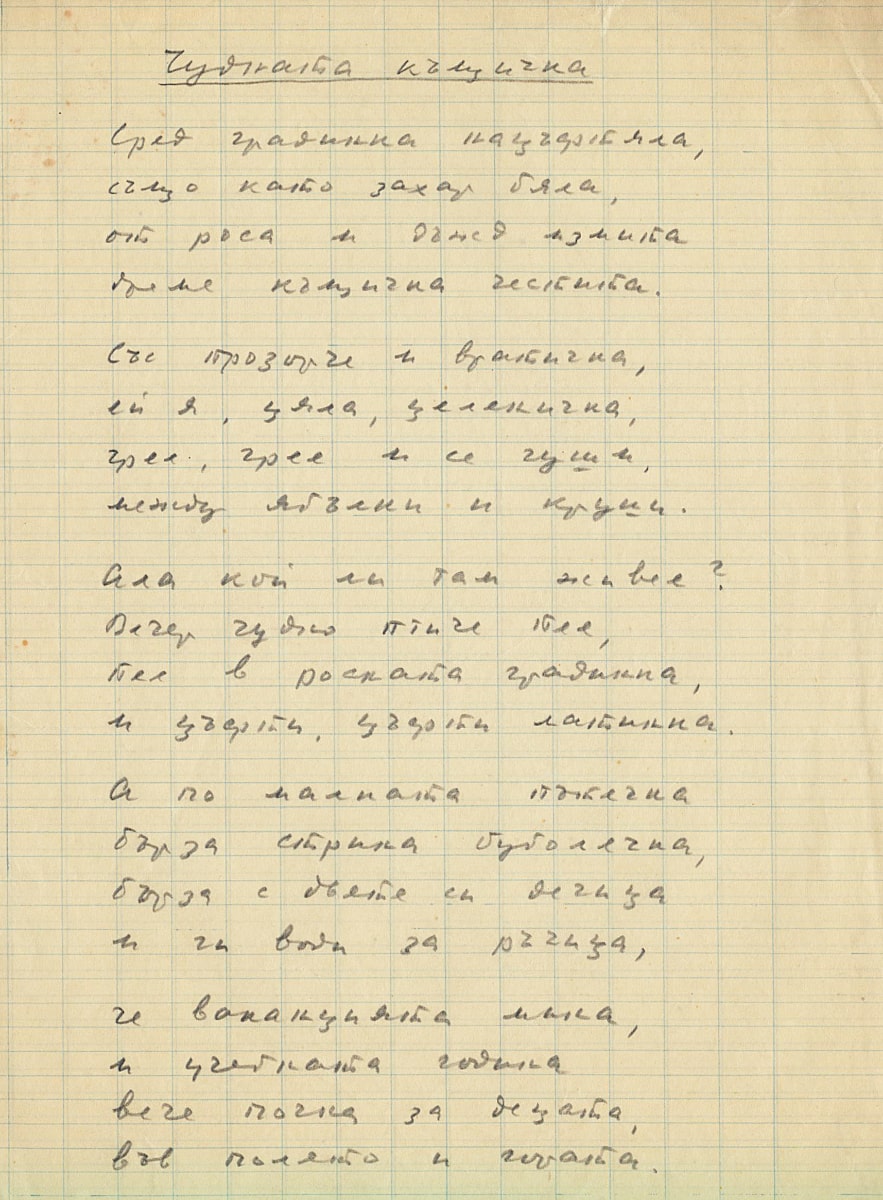 Чудната къщичка
Сред градинка нацъфтяла,
също като захар бяла,
от роса и дъжд измита
дреме къщичка честита.
Със прозорче и вратичка,
ей я, цяла, целеничка,
грее, грее и се гуши,
между ябълки и круши.
Ала кой ли там живее?
Вечер чудно птиче пее,
пее в росната градинка,
и цъфти, цъфти латинка.
А по малката пътечка
бърза стрина буболечка,
бърза с двете си дечица
и ги води за ръчица,
че ваканцията мина,
и учебната година
вече почна за децата,
във полято и гората.